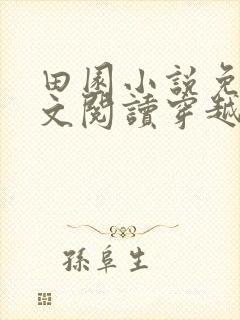 田園小說免
文閱讀穿越
孫阜生